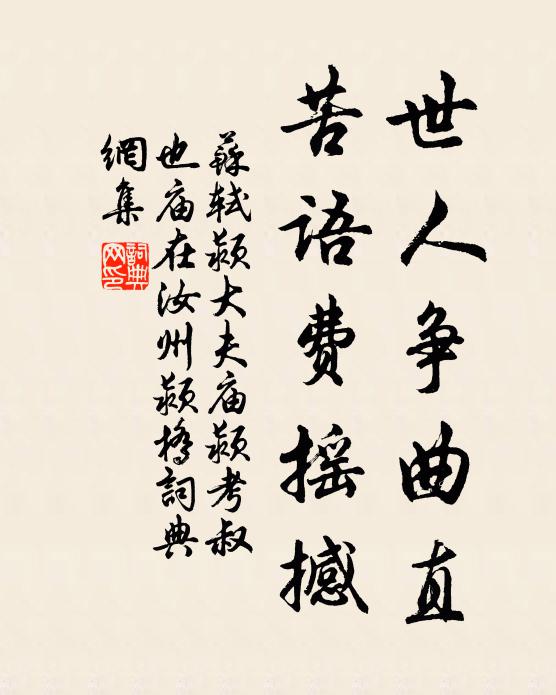 世人争曲直
苦语费摇撼
蘇轼颍大夫庙颍考叔
也庙在汝州颍橋詞典
網集
詞典
网印